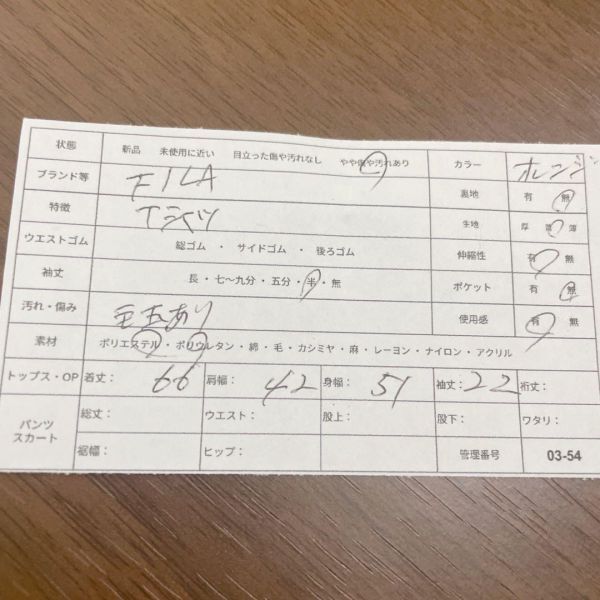 状態 新品 未使用に近い 目立った傷や汚れなし やや傷や汚れあり カラー オレンジ
ブランド等 FILA 裏地 有 無
特徴 Tシャツ 生地 厚 普 薄
ウエストゴム 総ゴム ・ サイドゴム ・ 後ろゴム 伸縮性 有 無
袖丈 長・七〜九分・五分・半・無 ポケット 有 無
汚れ・傷み 毛玉あり 使用感 有 無
素材 ポリエステル・ポリウレタン・綿・毛・カシミヤ・麻・レーヨン・ナイロン・アクリル
トップス・OP 着丈: 66 肩幅: 42 身幅: 51 袖丈: 22 裄丈:
パンツ スカート 総丈: ウエスト: 股上: 股下: ワタリ:
裾幅: ヒップ: 管理番号 03-54